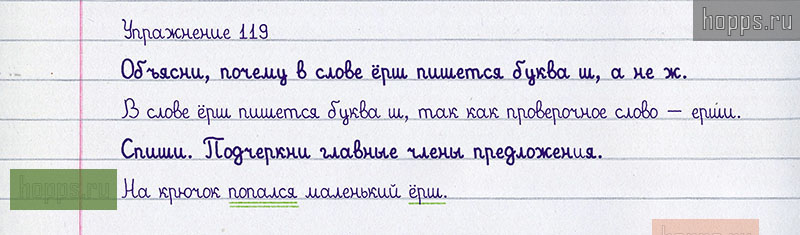 hopps.ru
Упражнение 119
Объясни, почему в слове ёрш пишется буква ш, а не ж.
В слове ёрш пишется буква ш, так как проверочное слово – ерши.
Спиши. Подчеркни главные члены предложения.
hopps.ru
На крючок попался маленький ёрш.
hopps.ru